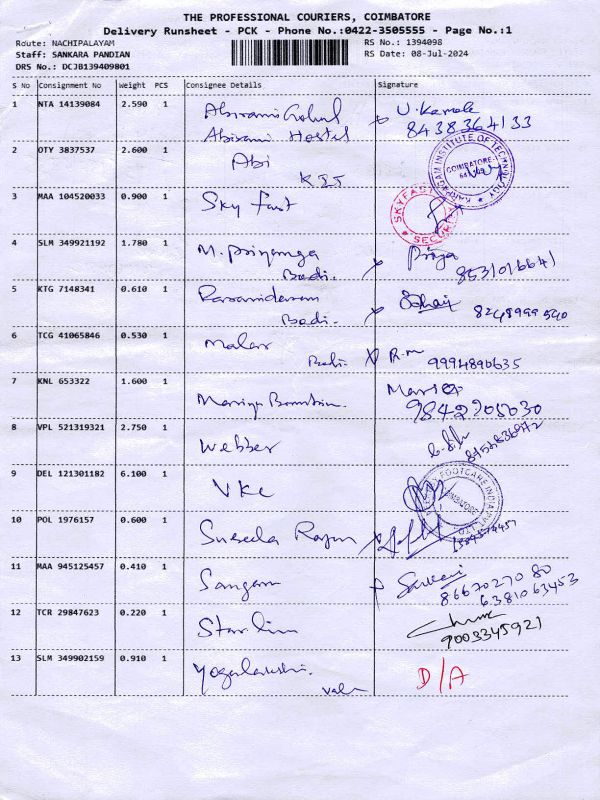 THE PROFESSIONAL COURIERS, COIMBATORE
Delivery Runsheet - PCK - Phone No.:0422-3505555 - Page No.:1
Route: NACHIPALAYAM
RS No.: 1394098
Staff: SANKARA PANDIAN
RS Date: 08-Jul-2024
DRS No.: DCJB139409801
S No Consignment No Weight PCS Consignee Details Signature
1 NTA 14139084 2.590 1 Abirami Gokul U. Kamala
Abirami Hostel 8438364133
2 OTY 3837537 2.600 1 Abi
KIT
KARPAGAM INSTITUTE OF TECHNOLOGY
COIMBATORE
3 MAA 104520033 0.900 1 Sky fast
SKYFAS
SECURITY
4 SLM 349921192 1.780 1 M. Priyanga Priya
Badi. 8531016641
5 KTG 7148341 0.610 1
Badi. 8248999540
6 TCG 41065846 0.530 1 Malar R.m
Badi. 9994890635
7 KNL 653322 1.600 1
9842905030
8 VPL 521319321 2.750 1 Webber
9 DEL 121301182 6.100 1 VKC
FOOTCARE INDIA PVT
10 POL 1976157 0.600 1
11 MAA 945125457 0.410 1 Sangam
8667027080
6381063453
12 TCR 29847623 0.220 1 Starlim
9003345921
13 SLM 349902159 0.910 1 D/A